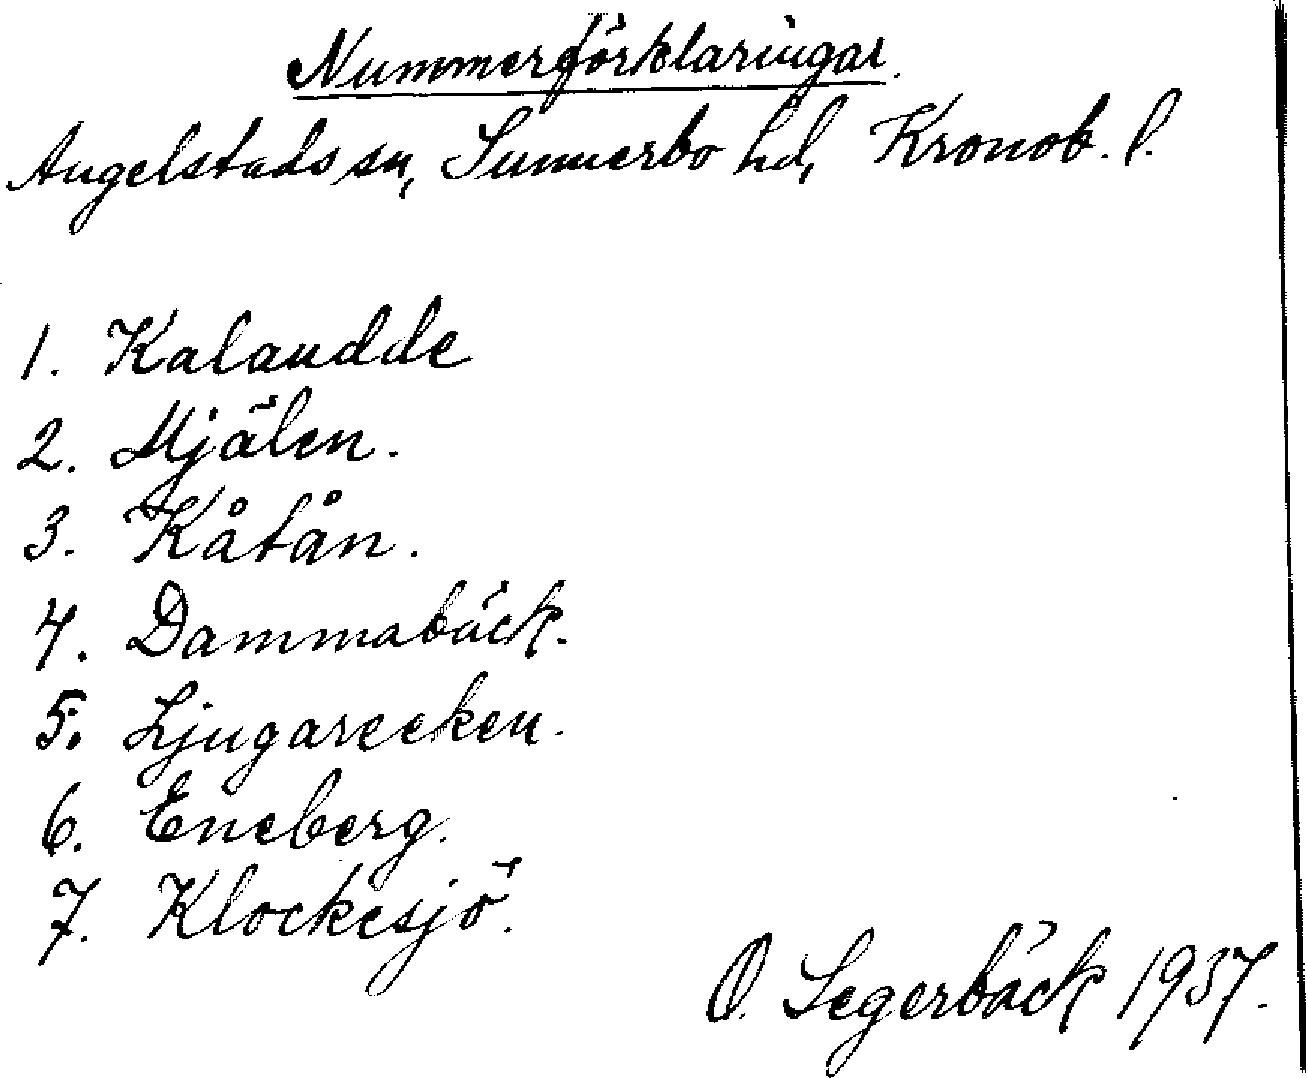 Nummerförklaringar.
Angelstads sn, Sunnerbo hd, Kronob. l.
1. Kalaudde
2. Mjälen.
3. Kåtån.
4. Dammabäck.
5. Ljugareeken.
6. Eneberg.
7. Klockesjö.
O. Segerbäck 1937.